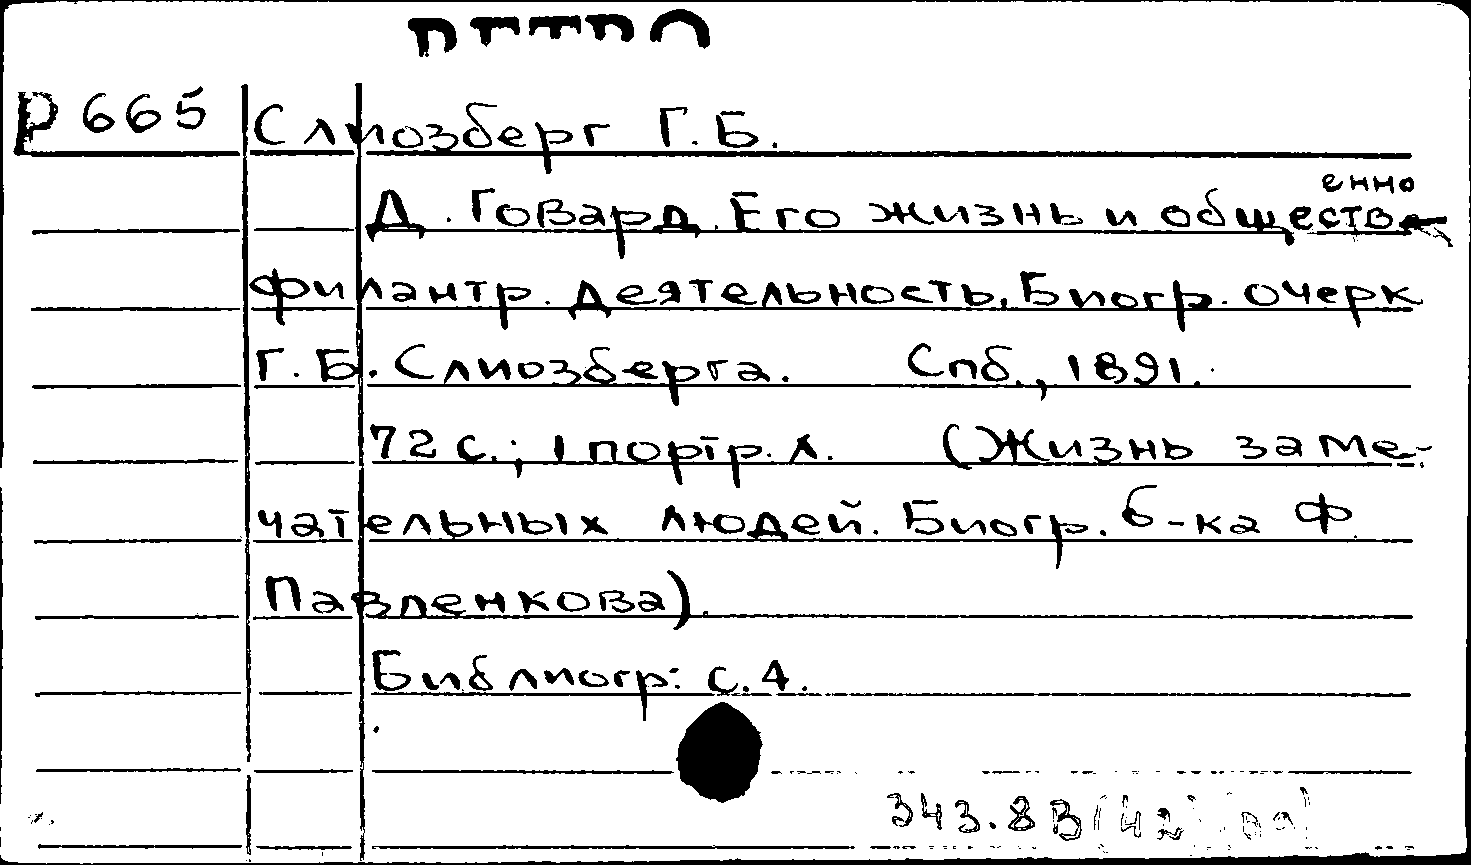 Р 665 Слиозберг Г. Б.
енно
Д. Говард. Его жизнь и обществ.
филантр. деятельность. Биогр. очерк
Г. Б. Слиозберга. Спб., 1891.
72 с.; 1 портр. л. (Жизнь заме-
чательных людей. Биогр. б-ка Ф.
Павленкова).
Библиогр: с. 4.
343.8В(42)